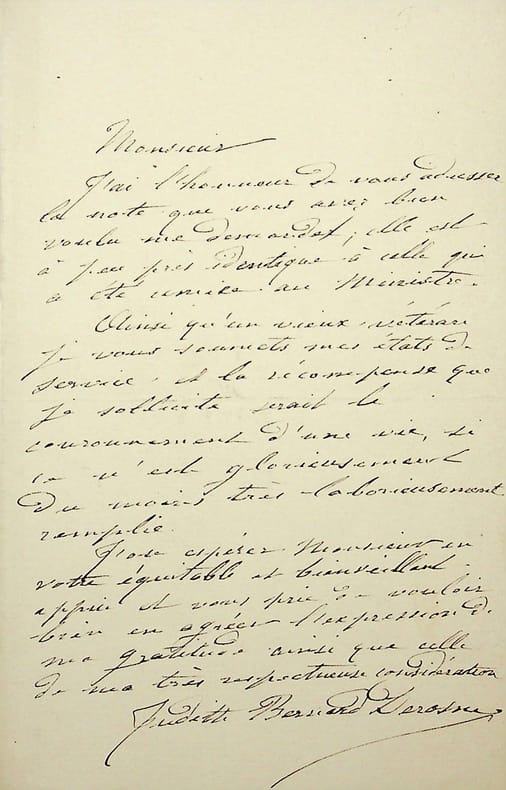 Monsieur
J'ai l'honneur de vous adresser
la note que vous avez bien
voulu me demander; elle est
à peu près identique à celle qui
a été remise au Ministre.
Ainsi qu'un vieux vétéran
je vous soumets mes états de
service et la récompense que
je sollicite serait le
couronnement d'une vie, si
ce n'est glorieusement
du moins très laborieusement
remplie.
J'ose espérer Monsieur en
votre équitable et bienveillant
appui et vous prie de vouloir
bien en agréer l'expression de
ma gratitude ainsi que celle
de ma très respectueuse considération
Judith Bernard Derosne